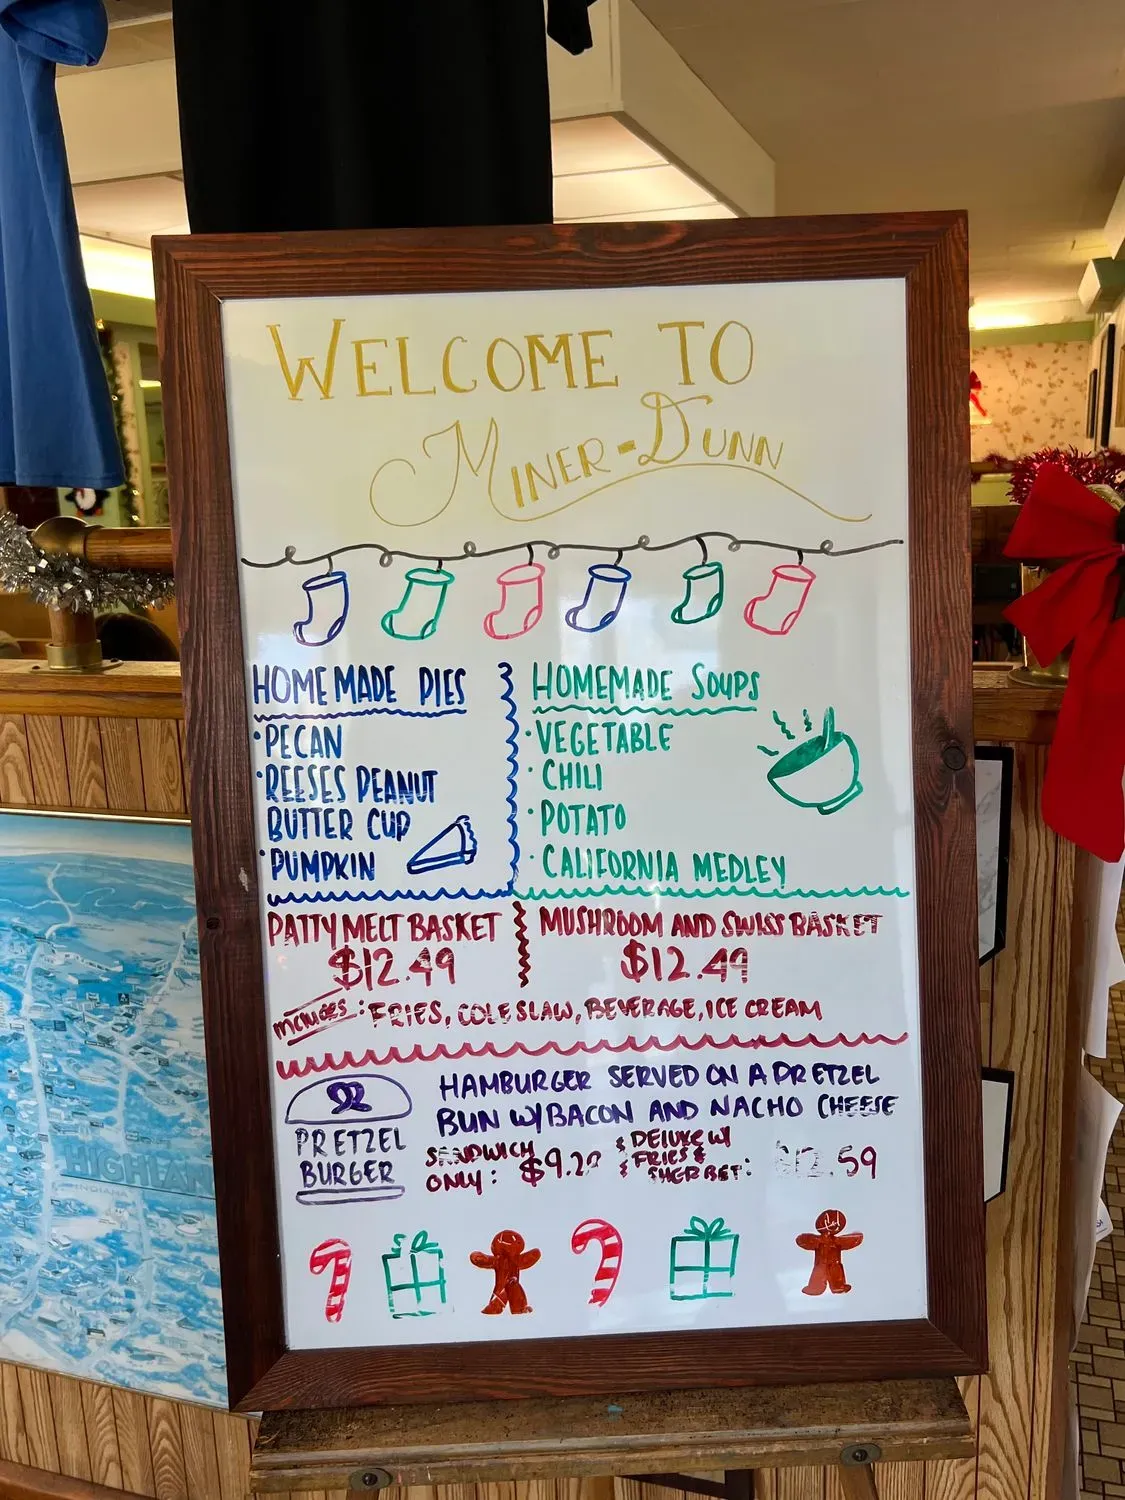 WELCOME TO
MINER-DUNN
HOMEMADE PIES
• PECAN
• REESES PEANUT
BUTTER CUP
• PUMPKIN
HOMEMADE SOUPS
• VEGETABLE
• CHILI
• POTATO
• CALIFORNIA MEDLEY
PATTY MELT BASKET
$12.49
MUSHROOM AND SWISS BASKET
$12.49
INCLUDES: FRIES, COLESLAW, BEVERAGE, ICE CREAM
PRETZEL
BURGER
HAMBURGER SERVED ON A PRETZEL
BUN W/BACON AND NACHO CHEESE
SANDWICH
ONLY:
DELUXE W/
FRIES &
SHERBET:
HIGHLAN
INDIANA